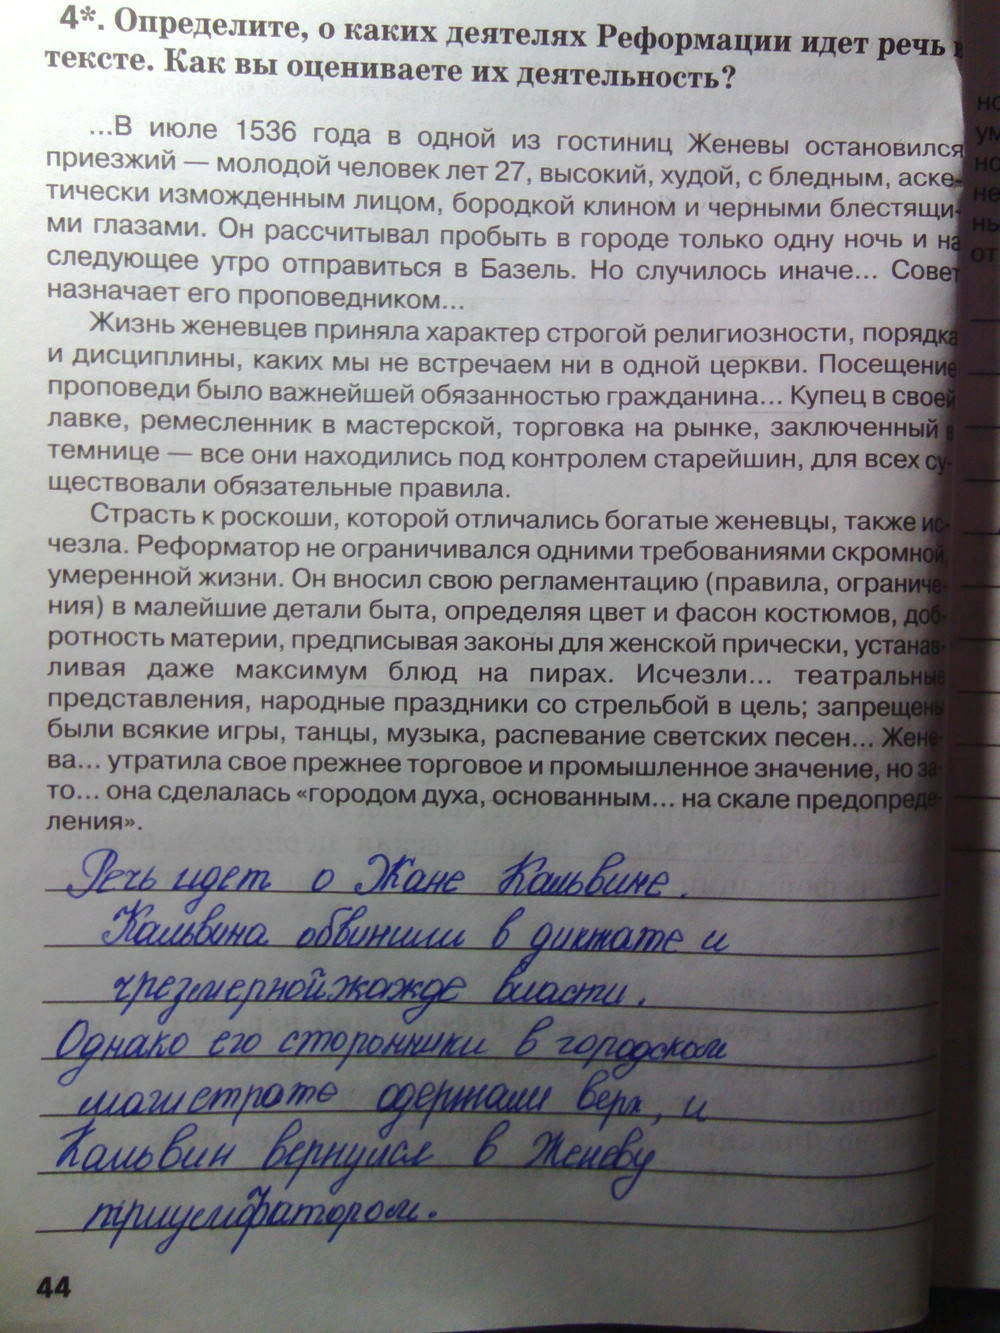 4*. Определите, о каких деятелях Реформации идет речь в
тексте. Как вы оцениваете их деятельность?
...В июле 1536 года в одной из гостиниц Женевы остановился
приезжий — молодой человек лет 27, высокий, худой, с бледным, аске-
тически изможденным лицом, бородкой клином и черными блестящи-
ми глазами. Он рассчитывал пробыть в городе только одну ночь и на
следующее утро отправиться в Базель. Но случилось иначе... Совет
назначает его проповедником...
Жизнь женевцев приняла характер строгой религиозности, порядка
и дисциплины, каких мы не встречаем ни в одной церкви. Посещение
проповеди было важнейшей обязанностью гражданина... Купец в своей
лавке, ремесленник в мастерской, торговка на рынке, заключенный в
темнице — все они находились под контролем старейшин, для всех су-
ществовали обязательные правила.
Страсть к роскоши, которой отличались богатые женевцы, также ис-
чезла. Реформатор не ограничивался одними требованиями скромной,
умеренной жизни. Он вносил свою регламентацию (правила, ограниче-
ния) в малейшие детали быта, определяя цвет и фасон костюмов, доб-
ротность материи, предписывая законы для женской прически, устанав-
ливая даже максимум блюд на пирах. Исчезли... театральные
представления, народные праздники со стрельбой в цель; запрещены
были всякие игры, танцы, музыка, распевание светских песен... Жене-
ва... утратила свое прежнее торговое и промышленное значение, но за-
то... она сделалась «городом духа, основанным... на скале предопреде-
ления».
Речь идет о Жане Кальвине.
Кальвина обвинили в диктате и
чрезмерной жажде власти.
Однако его сторонники в городском
магистрате одержали верх, и
Кальвин вернулся в Женеву
триумфатором.
44